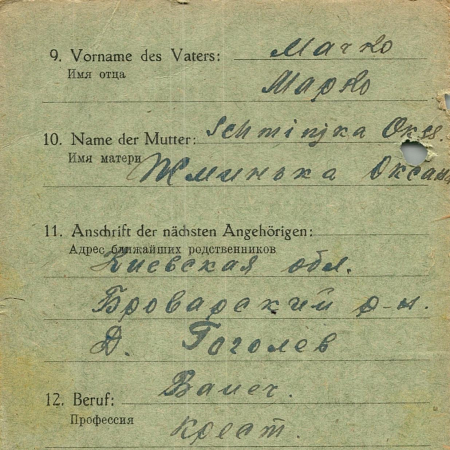 9. Vorname des Vaters: Марко
Имя отца Марко
10. Name der Mutter: Schminjka Oks
Имя матери Жминька Оксан
11. Anschrift der nächsten Angehörigen:
Адрес ближайших родственников
Киевская обл.
Броварский р-н.
д. Гоголев
12. Beruf: Bauer.
Профессия крест.